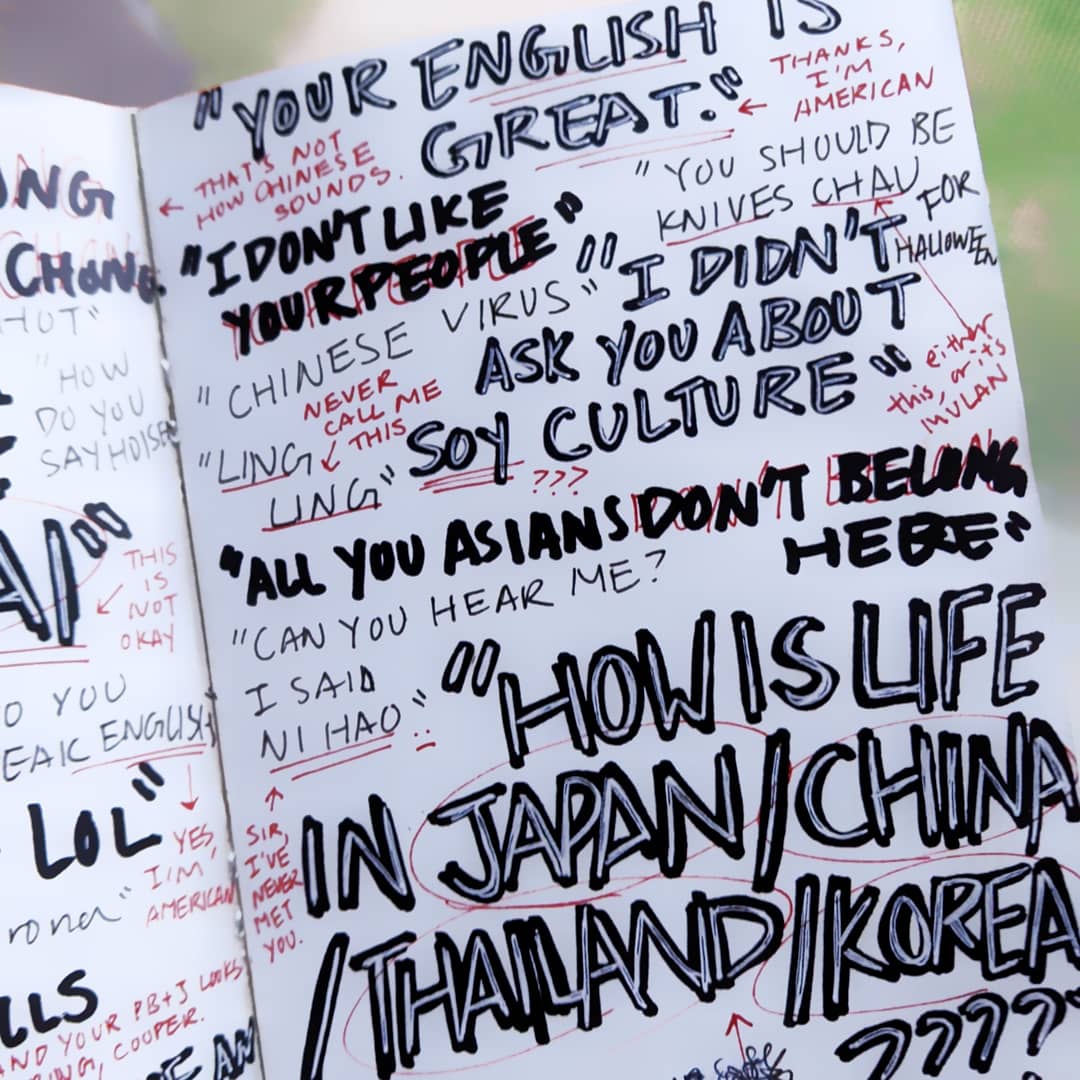 CHONG.
HOT"
"HOW
DO YOU
SAY
THIS
IS
NOT
OKAY
YOU
ENGLISH
LOL"
YES,
I'M
AMERICAN
AND YOUR PB+J LOOKS
COOPER.
"YOUR ENGLISH IS
GREAT."
THANKS,
I'M
AMERICAN
THAT'S NOT
HOW CHINESE
SOUNDS.
"YOU SHOULD BE
KNIVES CHAU
FOR
HALLOWEEN
either
this, or it's
MULAN
"I DON'T LIKE
YOUR PEOPLE"
"CHINESE VIRUS"
"I DIDN'T
ASK YOU ABOUT
SOY CULTURE"
???
NEVER
CALL ME
THIS
"LING
LING"
"ALL YOU ASIANS DON'T BELONG
HERE"
"CAN YOU HEAR ME?
I SAID
NI HAO"
SIR,
I'VE
NEVER
MET
YOU.
"HOW IS LIFE
IN JAPAN/CHINA
/THAILAND/KOREA
????